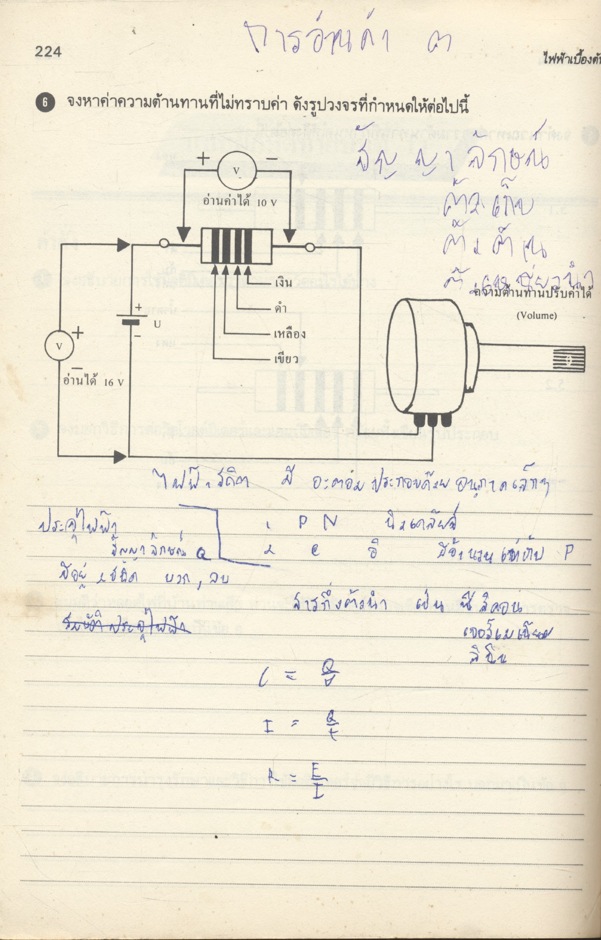 การอ่านค่า ๓
224
ไฟฟ้าเบื้องต้
6 จงหาค่าความต้านทานที่ไม่ทราบค่า ดังรูปวงจรที่กำหนดให้ต่อไปนี้
สัญญาลักษณ์
+ V −
อ่านค่าได้ 10 V
ตัวเก็บ
ตัวต้าน
ความต้านทานปรับค่าได้
(Volume)
เงิน
ดำ
เหลือง
เขียว
+
U
−
+
V
−
อ่านได้ 16 V
ไฟฟ้าสถิต มี อะตอม ประกอบด้วย อนุภาคเล็กๆ
ประจุไฟฟ้า
1 P N นิวเคลียส
สัญญาลักษณ์ Q
2 e อิ มีจำนวนเท่ากับ P
มีอยู่ 2 ชนิด บวก, ลบ
สารกึ่งตัวนำ เช่น ซิลิคอน
เจอร์เมเนียม
I = Q/t
R = E/I